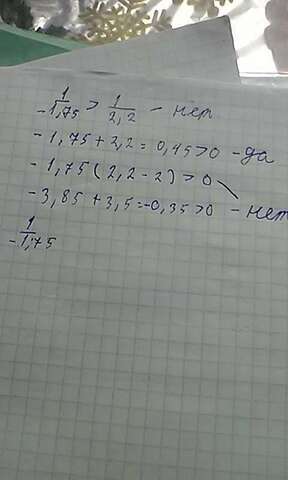 1/-1,75 > 1/2,2 - нет
-1,75 + 2,2 = 0,45 > 0 - да
-1,75 (2,2 - 2) > 0
-3,85 + 3,5 = -0,35 > 0 - нет
1/-1,75